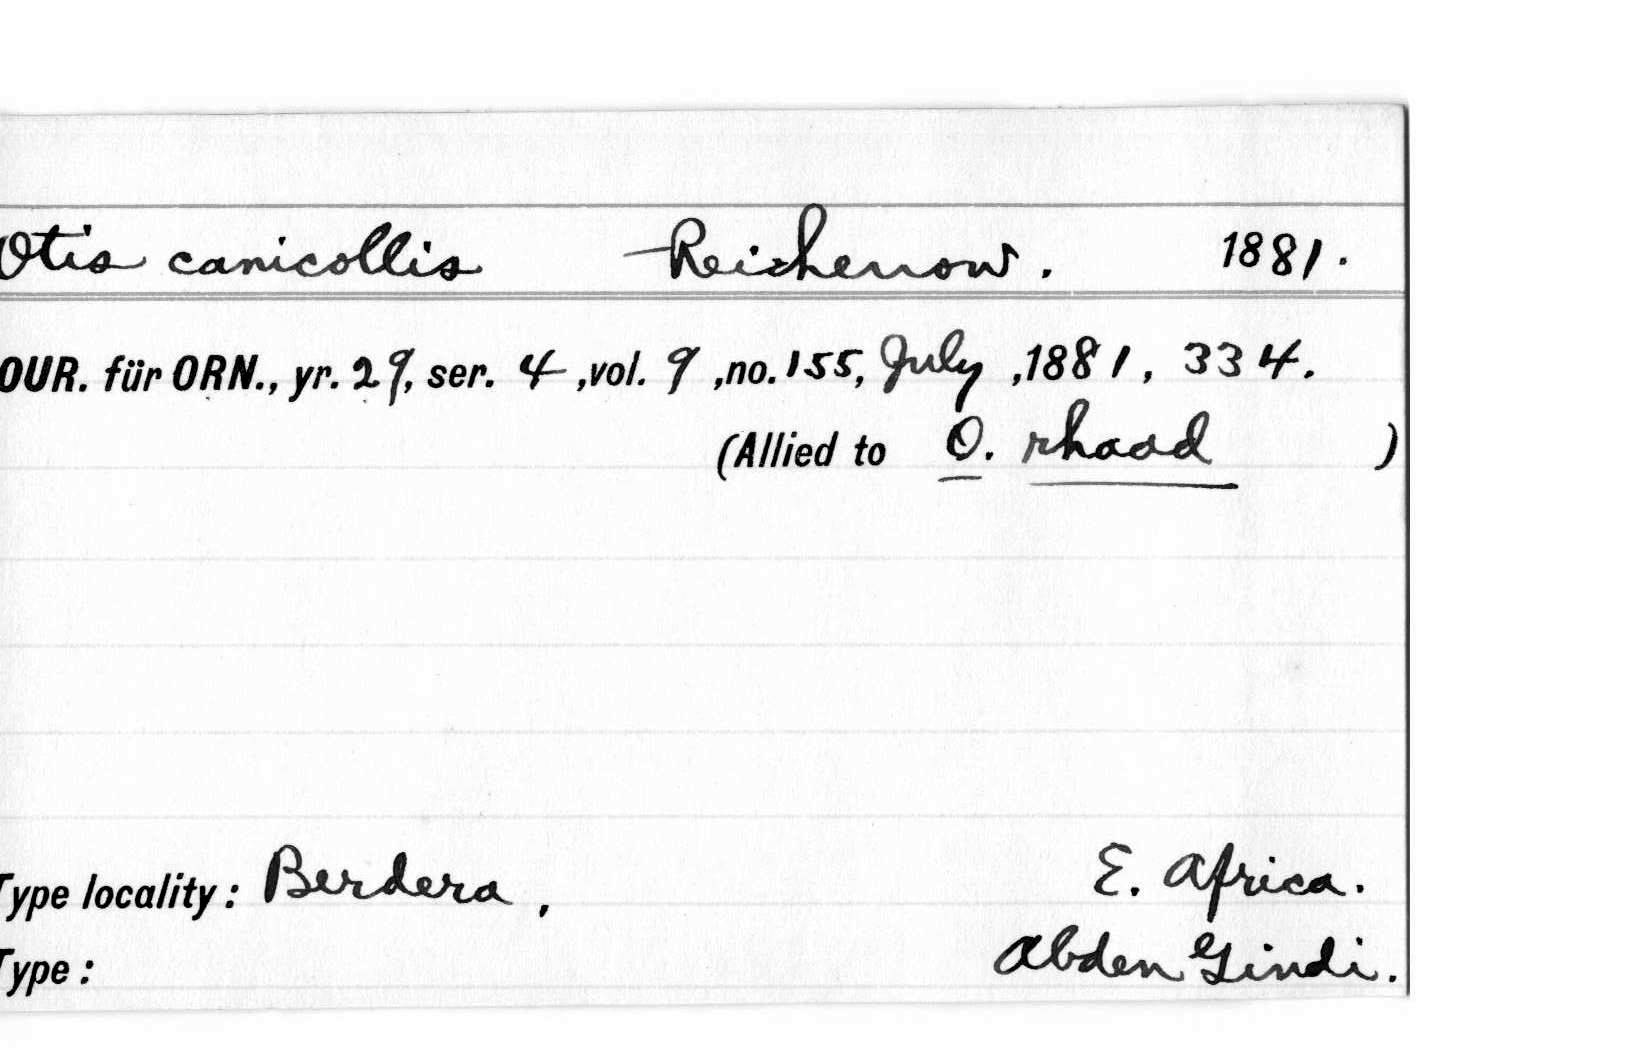 Otis canicollis Reichenow. 1881.
OUR. für ORN., yr. 29, ser. 4 ,vol. 9 ,no. 155, July ,1881, 334.
(Allied to O. rhaad )
Type locality: Berdera, E. Africa.
Type: Abden Gindi.